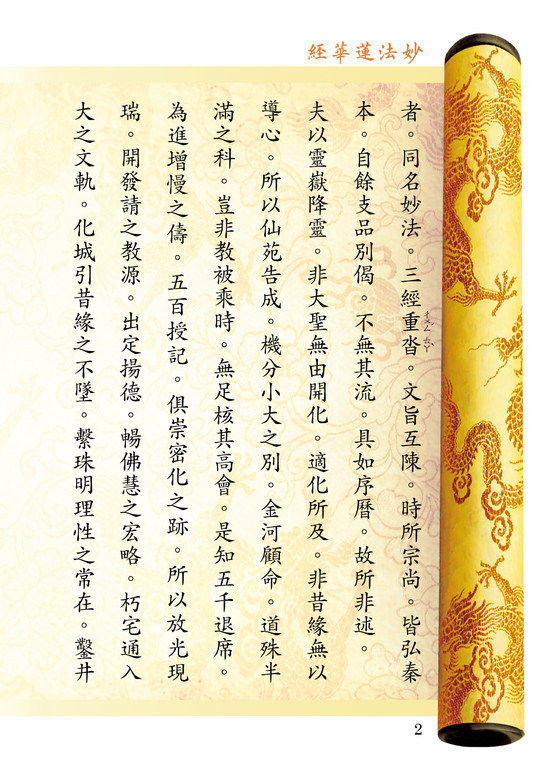 妙法蓮華經
者。同名妙法。三經重沓。文旨互陳。時所宗尚。皆弘秦
本。自餘支品別偈。不無其流。具如序曆。故所非述。
夫以靈嶽降靈。非大聖無由開化。適化所及。非昔緣無以
導心。所以仙苑告成。機分小大之別。金河顧命。道殊半
滿之科。豈非教被乘時。無足核其高會。是知五千退席。
為進增慢之儔。五百授記。俱崇密化之跡。所以放光現
瑞。開發請之教源。出定揚德。暢佛慧之宏略。朽宅通入
大之文軌。化城引昔緣之不墜。繫珠明理性之常在。鑿井
2